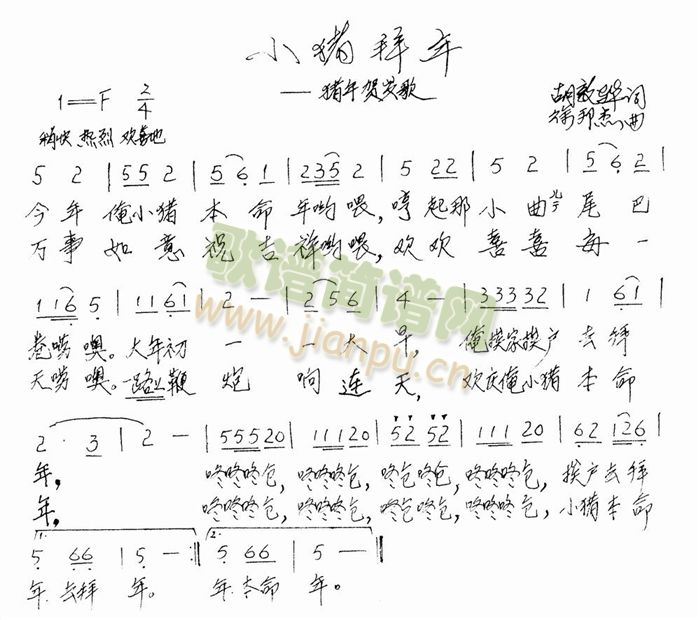 小猪拜年
——猪年贺岁歌
1=F 2/4
胡敦骅词
徐邦杰曲
畅快 热烈 欢喜地
5 2 | 55 2 | 5 6 1 | 235 2 | 5 22 | 5 2 | 5 6 2 |
今年 俺小猪 本命 年哟喂，哼起那 小曲儿 尾巴
万事 如意 祝吉 祥哟喂，欢欢 喜喜 每一
116 5 | 116 1 | 2 — | 2 5 6 | 4 — | 33332 | 1 61 |
卷唠噢。大年初 一 一大 早，俺挨家挨户 去拜
天唠噢。一路上鞭 炮 响连 天，欢庆俺小猪 本命
2 · 3 | 2 — | 55520 | 11120 | 52 52 | 111 20 | 62 126 |
年， 咚咚咚仓，咚咚咚仓，咚仓咚仓，咚咚咚仓，挨户去拜
年， 咚咚咚仓，咚咚咚仓，咚仓咚仓，咚咚咚仓，小猪本命
1. 2.
5 66 | 5 — :‖ 5 66 | 5 — ‖
年.去拜 年。 年.本命 年。
歌谱简谱网
www.jianpu.cn